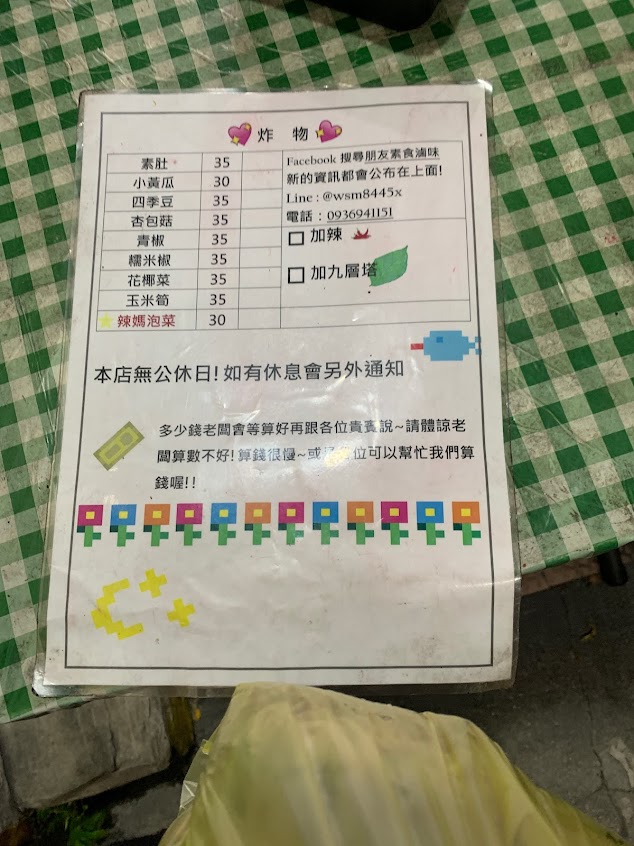 炸 物
素肚 35
小黃瓜 30
四季豆 35
杏包菇 35
青椒 35
糯米椒 35
花椰菜 35
玉米筍 35
辣媽泡菜 30
Facebook 搜尋朋友素食滷味
新的資訊都會公布在上面!
Line : @wsm8445x
電話 : 0936941151
加辣
加九層塔
本店無公休日! 如有休息會另外通知
多少錢老闆會等算好再跟各位貴賓說~請體諒老
闆算數不好! 算錢很慢~或 位可以幫忙我們算
錢喔! !